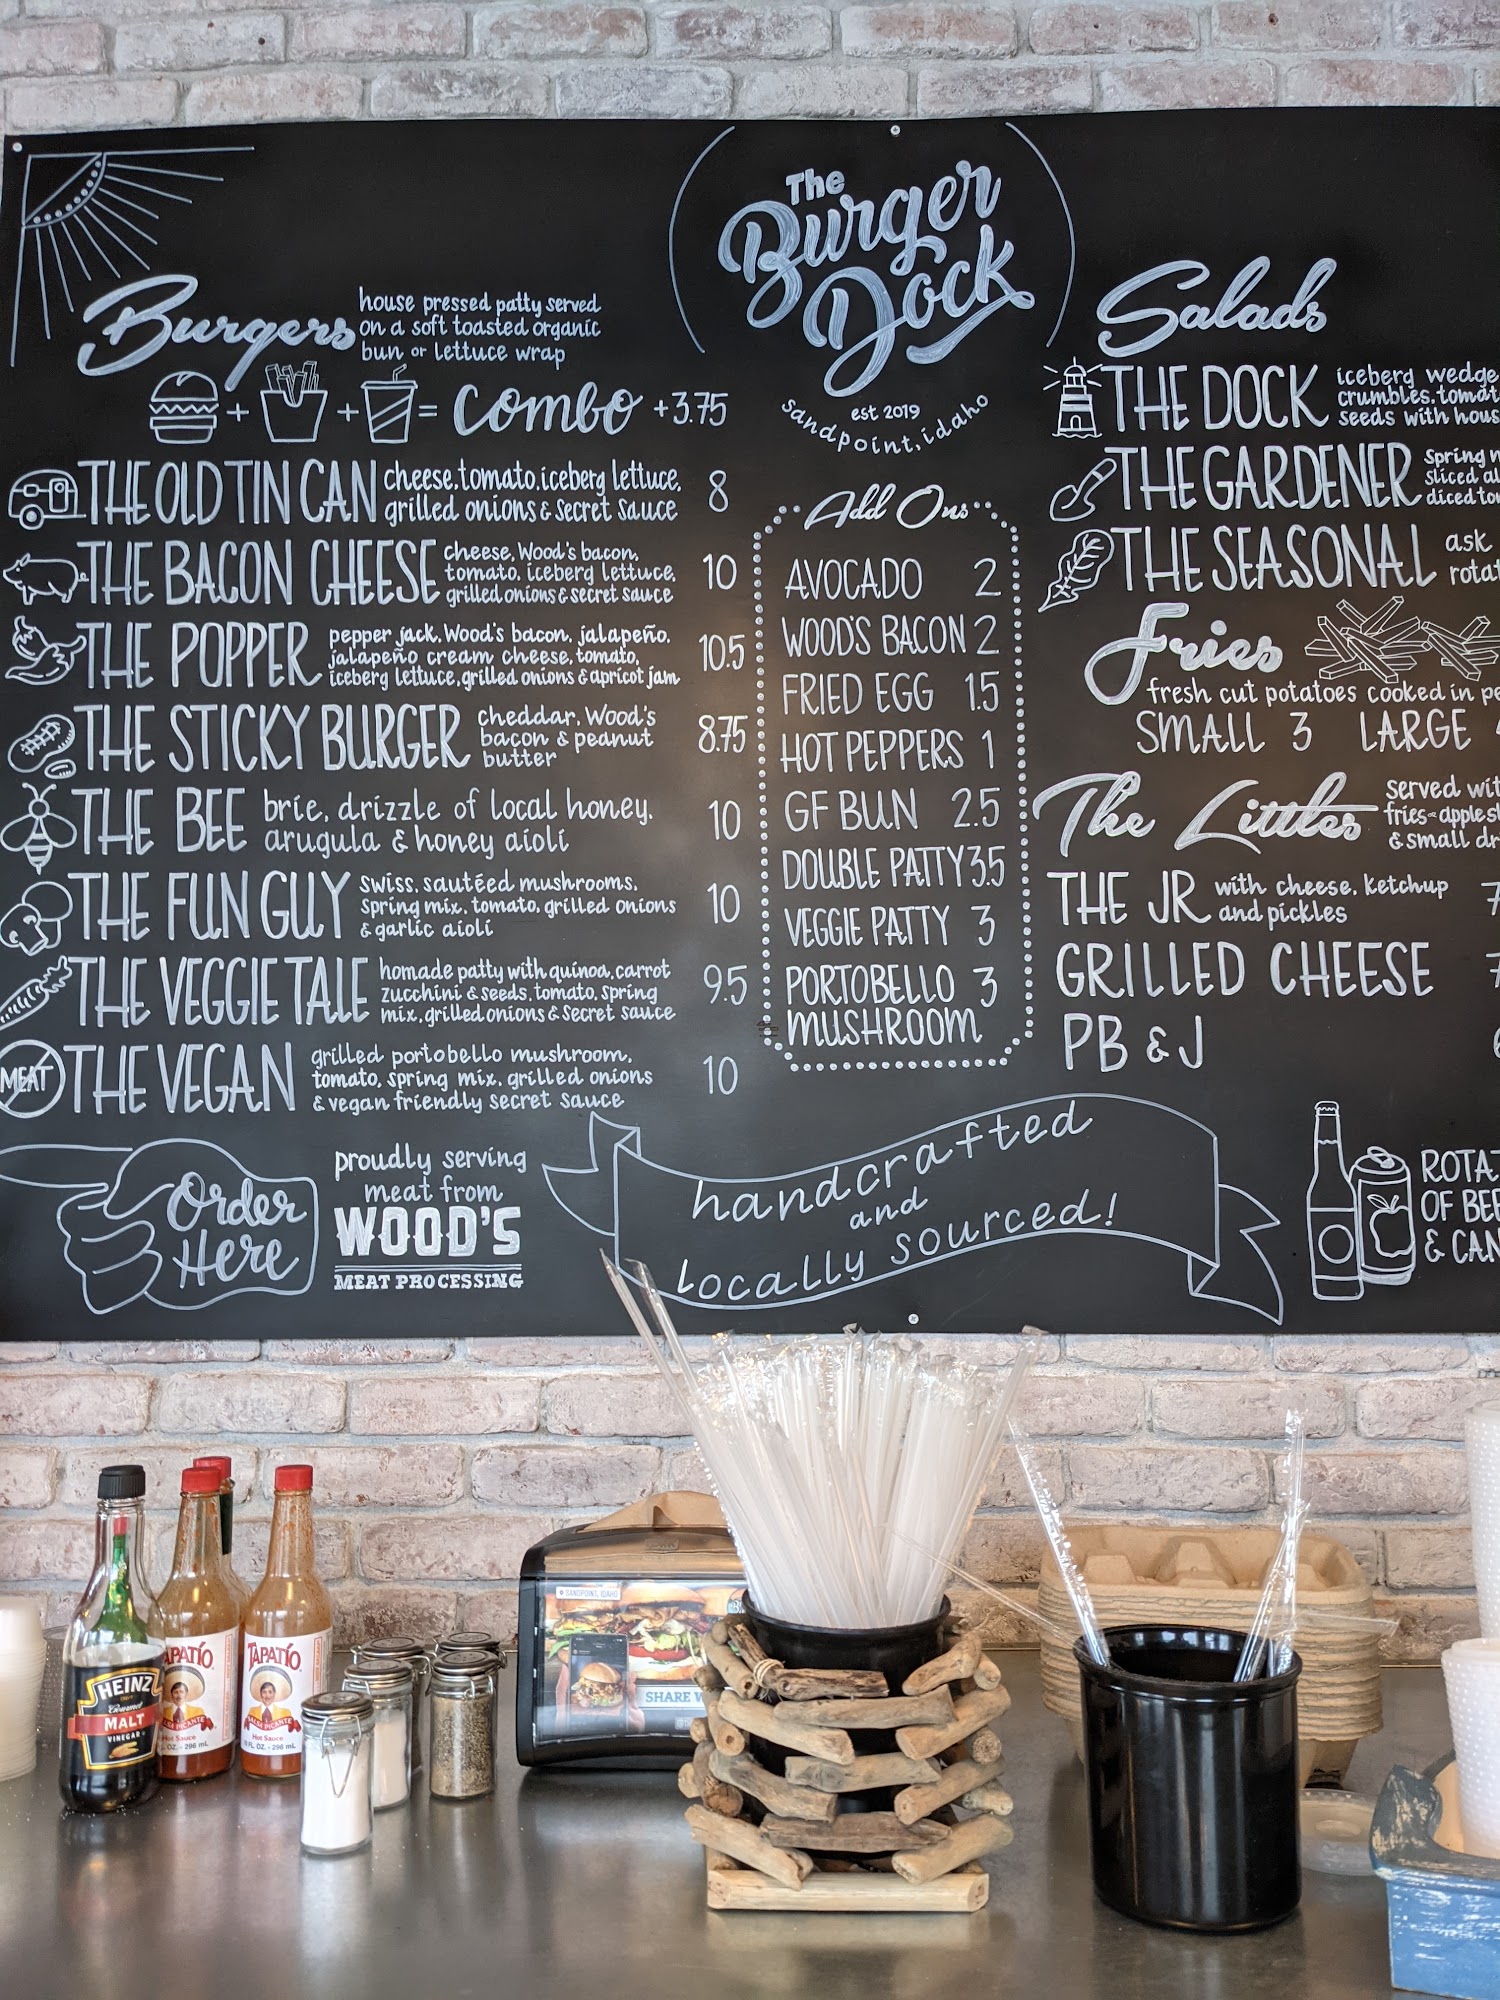 The
Burger
Dock
est 2019
sandpoint, idaho
Burgers
house pressed patty served
on a soft toasted organic
bun or lettuce wrap
+ + = combo +3.75
THE OLD TIN CAN
cheese, tomato, iceberg lettuce,
grilled onions & secret sauce
8
THE BACON CHEESE
cheese, Wood's bacon,
tomato, iceberg lettuce,
grilled onions & secret sauce
10
THE POPPER
pepper jack, Wood's bacon, jalapeño,
jalapeño cream cheese, tomato,
iceberg lettuce, grilled onions & apricot jam
10.5
THE STICKY BURGER
cheddar, Wood's
bacon & peanut
butter
8.75
THE BEE
brie, drizzle of local honey,
arugula & honey aioli
10
THE FUN GUY
swiss, sautéed mushrooms,
spring mix, tomato, grilled onions
& garlic aioli
10
THE VEGGIE TALE
homade patty with quinoa, carrot
zucchini & seeds, tomato, spring
mix, grilled onions & secret sauce
9.5
MEAT
THE VEGAN
grilled portobello mushroom,
tomato, spring mix, grilled onions
& vegan friendly secret sauce
10
Order
Here
proudly serving
meat from
WOOD'S
MEAT PROCESSING
Add Ons
AVOCADO 2
WOOD'S BACON 2
FRIED EGG 1.5
HOT PEPPERS 1
GF BUN 2.5
DOUBLE PATTY 3.5
VEGGIE PATTY 3
PORTOBELLO 3
MUSHROOM
handcrafted
and
locally sourced!
Salads
THE DOCK
iceberg wedge
crumbles, tomat
seeds with hous
THE GARDENER
spring
sliced al
diced to
THE SEASONAL
ask
rotat
Fries
fresh cut potatoes cooked in pe
SMALL 3 LARGE
The Littles
served wit
fries or apples
& small dr
THE JR
with cheese, ketchup
and pickles
7
GRILLED CHEESE 7
PB & J
ROTAT
OF BEE
& CAN
HEINZ
Gourmet
MALT
VINEGAR
TAPATÍO
SALSA PICANTE
Hot Sauce
OZ. - 296 mL
TAPATÍO
SALSA PICANTE
Hot Sauce
FL OZ. - 296 mL
SANDPOINT, IDAHO
SHARE